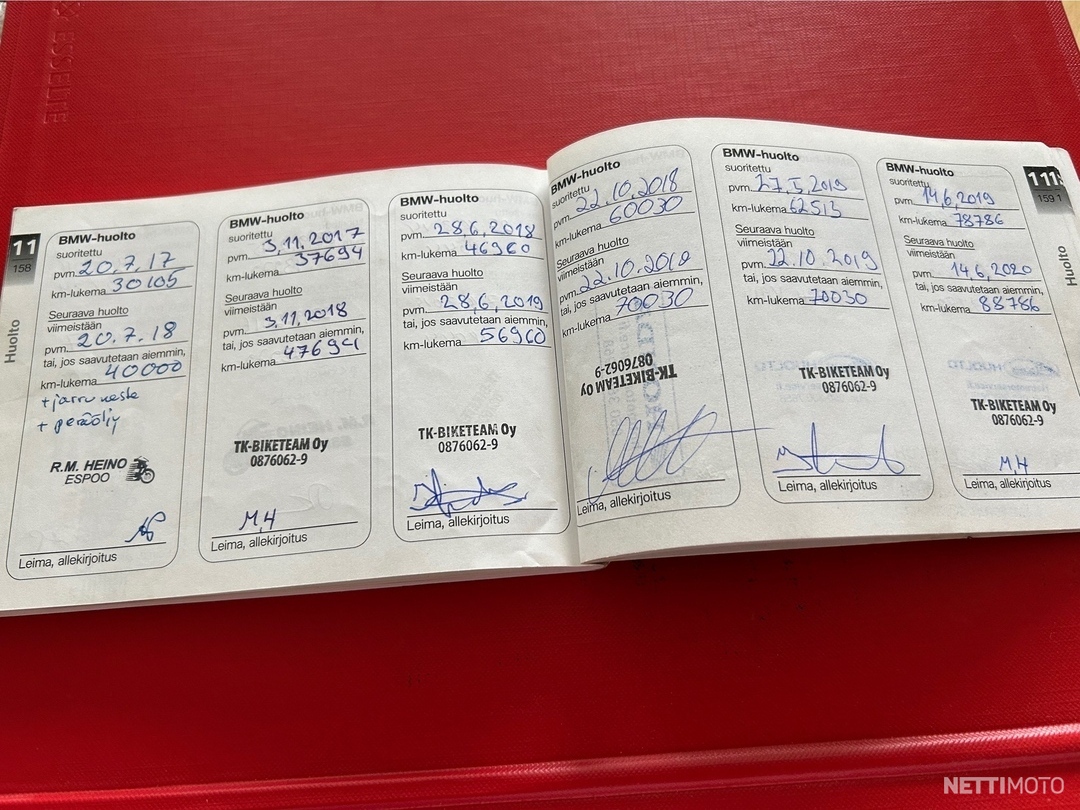 ESSELTE
11
158
Huolto
BMW-huolto
suoritettu
pvm. 20.7.17
km-lukema 30105
Seuraava huolto
viimeistään
pvm. 20.7.18
tai, jos saavutetaan aiemmin,
km-lukema 40000
+ jarruneste
+ peräöljy
R.M. HEINO
ESPOO
Leima, allekirjoitus
BMW-huolto
suoritettu
pvm. 3.11.2017
km-lukema 37694
Seuraava huolto
viimeistään
pvm. 3.11.2018
tai, jos saavutetaan aiemmin,
km-lukema 47694
TK-BIKETEAM Oy
0876062-9
M.H
Leima, allekirjoitus
BMW-huolto
suoritettu
pvm. 28.6.2018
km-lukema 46960
Seuraava huolto
viimeistään
pvm. 28.6.2019
tai, jos saavutetaan aiemmin,
km-lukema 56960
TK-BIKETEAM Oy
0876062-9
Leima, allekirjoitus
BMW-huolto
suoritettu
pvm. 22.10.2018
km-lukema 60030
Seuraava huolto
viimeistään
pvm. 22.10.2019
tai, jos saavutetaan aiemmin,
km-lukema 70030
TK-BIKETEAM Oy
0876062-9
Leima, allekirjoitus
BMW-huolto
suoritettu
pvm. 27.5.2019
km-lukema 62513
Seuraava huolto
viimeistään
pvm. 22.10.2019
tai, jos saavutetaan aiemmin,
km-lukema 70030
TK-BIKETEAM Oy
0876062-9
Leima, allekirjoitus
BMW-huolto
suoritettu
pvm. 14.6.2019
km-lukema 78786
Seuraava huolto
viimeistään
pvm. 14.6.2020
tai, jos saavutetaan aiemmin,
km-lukema 88786
TK-BIKETEAM Oy
0876062-9
M.H
Leima, allekirjoitus
11
159
Huolto
NETTIMOTO